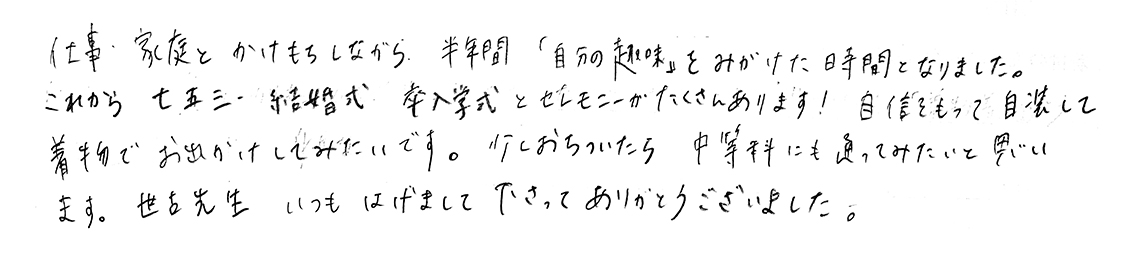 仕事・家庭と かけもちしながら 半年間 「自分の趣味」を みがけた 時間となりました。
これから 七五三・結婚式 卒入学式と セレモニーが たくさんあります! 自信をもって 自装して
着物で お出かけしてみたいです。 少しおちついたら 中等科にも 通ってみたいと 思い
ます。 世古先生 いつも はげまして 下さって ありがとうございました。